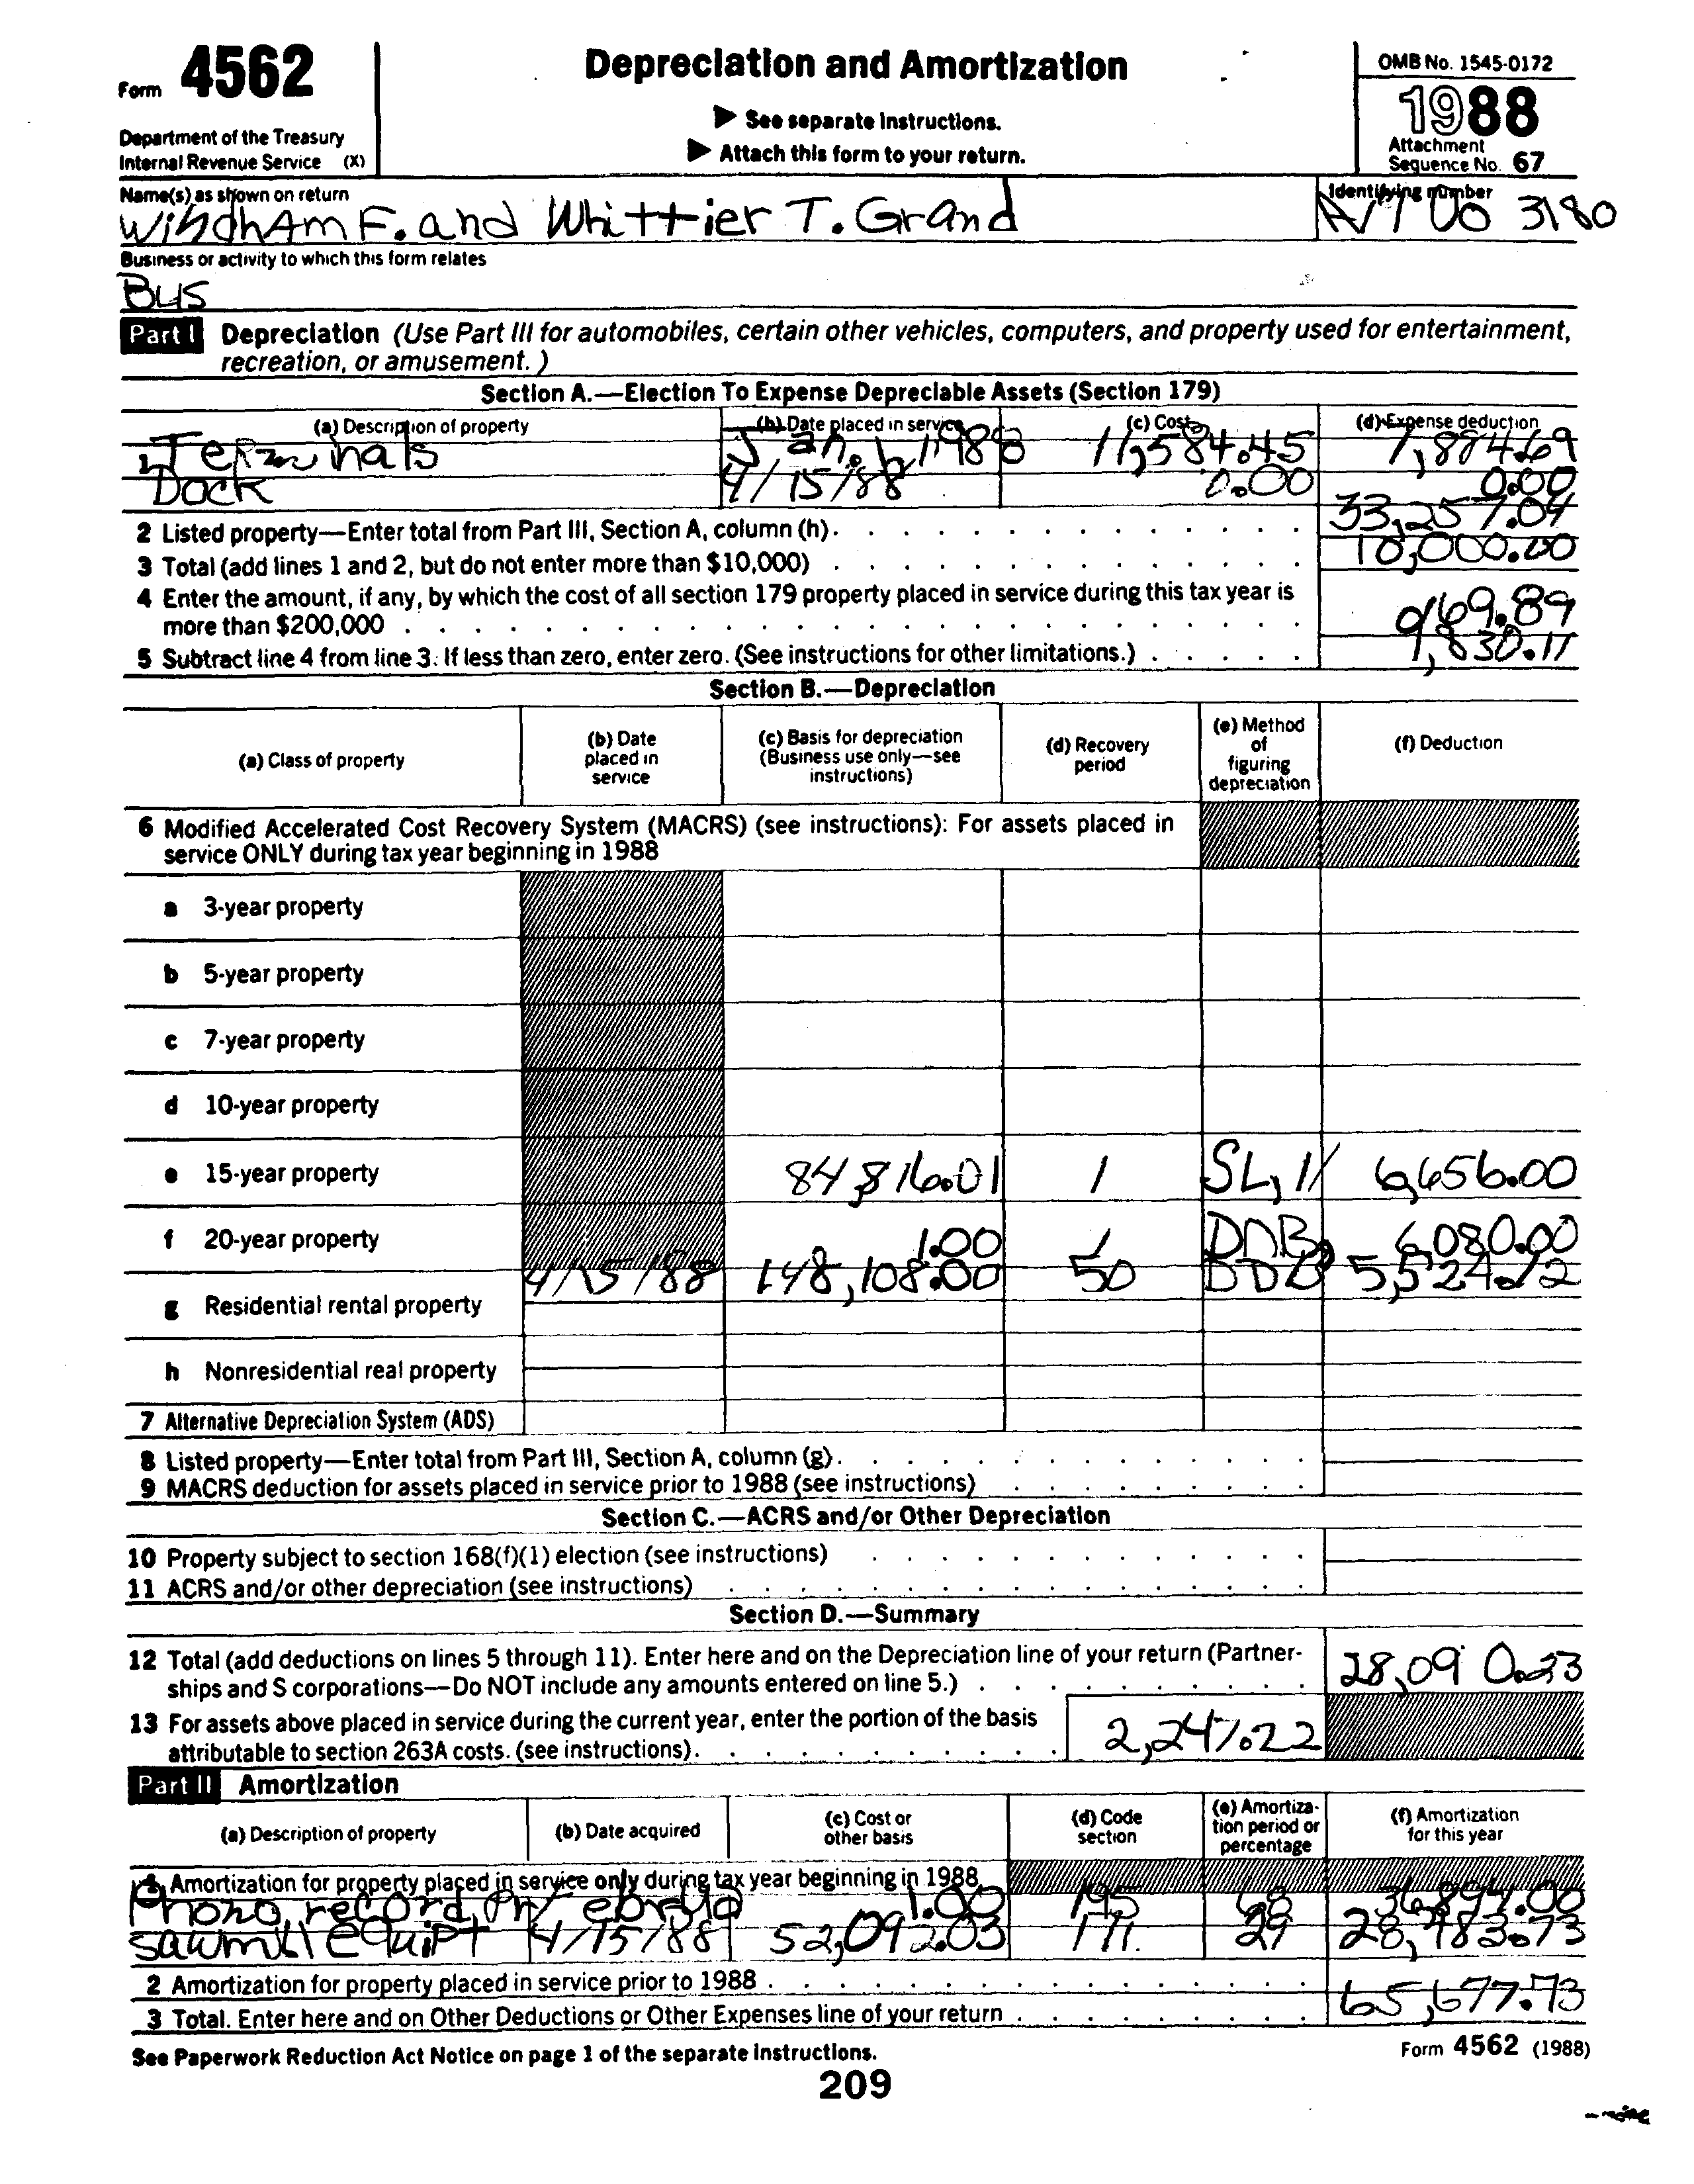 Form 4562
Department of the Treasury
Internal Revenue Service (X)
Depreciation and Amortization
▶ See separate Instructions.
▶ Attach this form to your return.
OMB No. 1545-0172
1988
Attachment
Sequence No. 67
Name(s) as shown on return
Windham F. and Whittier T. Grand
Identifying number
3180
Business or activity to which this form relates
Bus
Part I Depreciation (Use Part III for automobiles, certain other vehicles, computers, and property used for entertainment,
recreation, or amusement.)
Section A.—Election To Expense Depreciable Assets (Section 179)
(a) Description of property (b) Date placed in service (c) Cost (d) Expense deduction
1 Terminals Jan. 1, 1988 11,584.45
Dock 4/15/88 0.00 0.00
2 Listed property—Enter total from Part III, Section A, column (h). 33,257.04
3 Total (add lines 1 and 2, but do not enter more than $10,000) 10,000.00
4 Enter the amount, if any, by which the cost of all section 179 property placed in service during this tax year is
more than $200,000 969.89
5 Subtract line 4 from line 3. If less than zero, enter zero. (See instructions for other limitations.) 9,830.11
Section B.—Depreciation
(a) Class of property (b) Date placed in service (c) Basis for depreciation (Business use only—see instructions) (d) Recovery period (e) Method of figuring depreciation (f) Deduction
6 Modified Accelerated Cost Recovery System (MACRS) (see instructions): For assets placed in
service ONLY during tax year beginning in 1988
a 3-year property
b 5-year property
c 7-year property
d 10-year property
e 15-year property 84,816.01 1 SL, 6,656.00
f 20-year property 1.00 1 6,080.00
4/15/88 148,108.00 50 DDB 5,524.12
g Residential rental property
h Nonresidential real property
7 Alternative Depreciation System (ADS)
8 Listed property—Enter total from Part III, Section A, column (g).
9 MACRS deduction for assets placed in service prior to 1988 (see instructions)
Section C.—ACRS and/or Other Depreciation
10 Property subject to section 168(f)(1) election (see instructions)
11 ACRS and/or other depreciation (see instructions)
Section D.—Summary
12 Total (add deductions on lines 5 through 11). Enter here and on the Depreciation line of your return (Partner-
ships and S corporations—Do NOT include any amounts entered on line 5.) 28,090.23
13 For assets above placed in service during the current year, enter the portion of the basis
attributable to section 263A costs. (see instructions). 2,247.22
Part II Amortization
(a) Description of property (b) Date acquired (c) Cost or other basis (d) Code section (e) Amortization period or percentage (f) Amortization for this year
1 Amortization for property placed in service only during tax year beginning in 1988
Phono record, 1.00 195 68 36,894.00
sawmill equipt 4/15/88 52,092.03 171. 29 28,783.73
2 Amortization for property placed in service prior to 1988
3 Total. Enter here and on Other Deductions or Other Expenses line of your return 65,677.73
See Paperwork Reduction Act Notice on page 1 of the separate Instructions.
Form 4562 (1988)
209